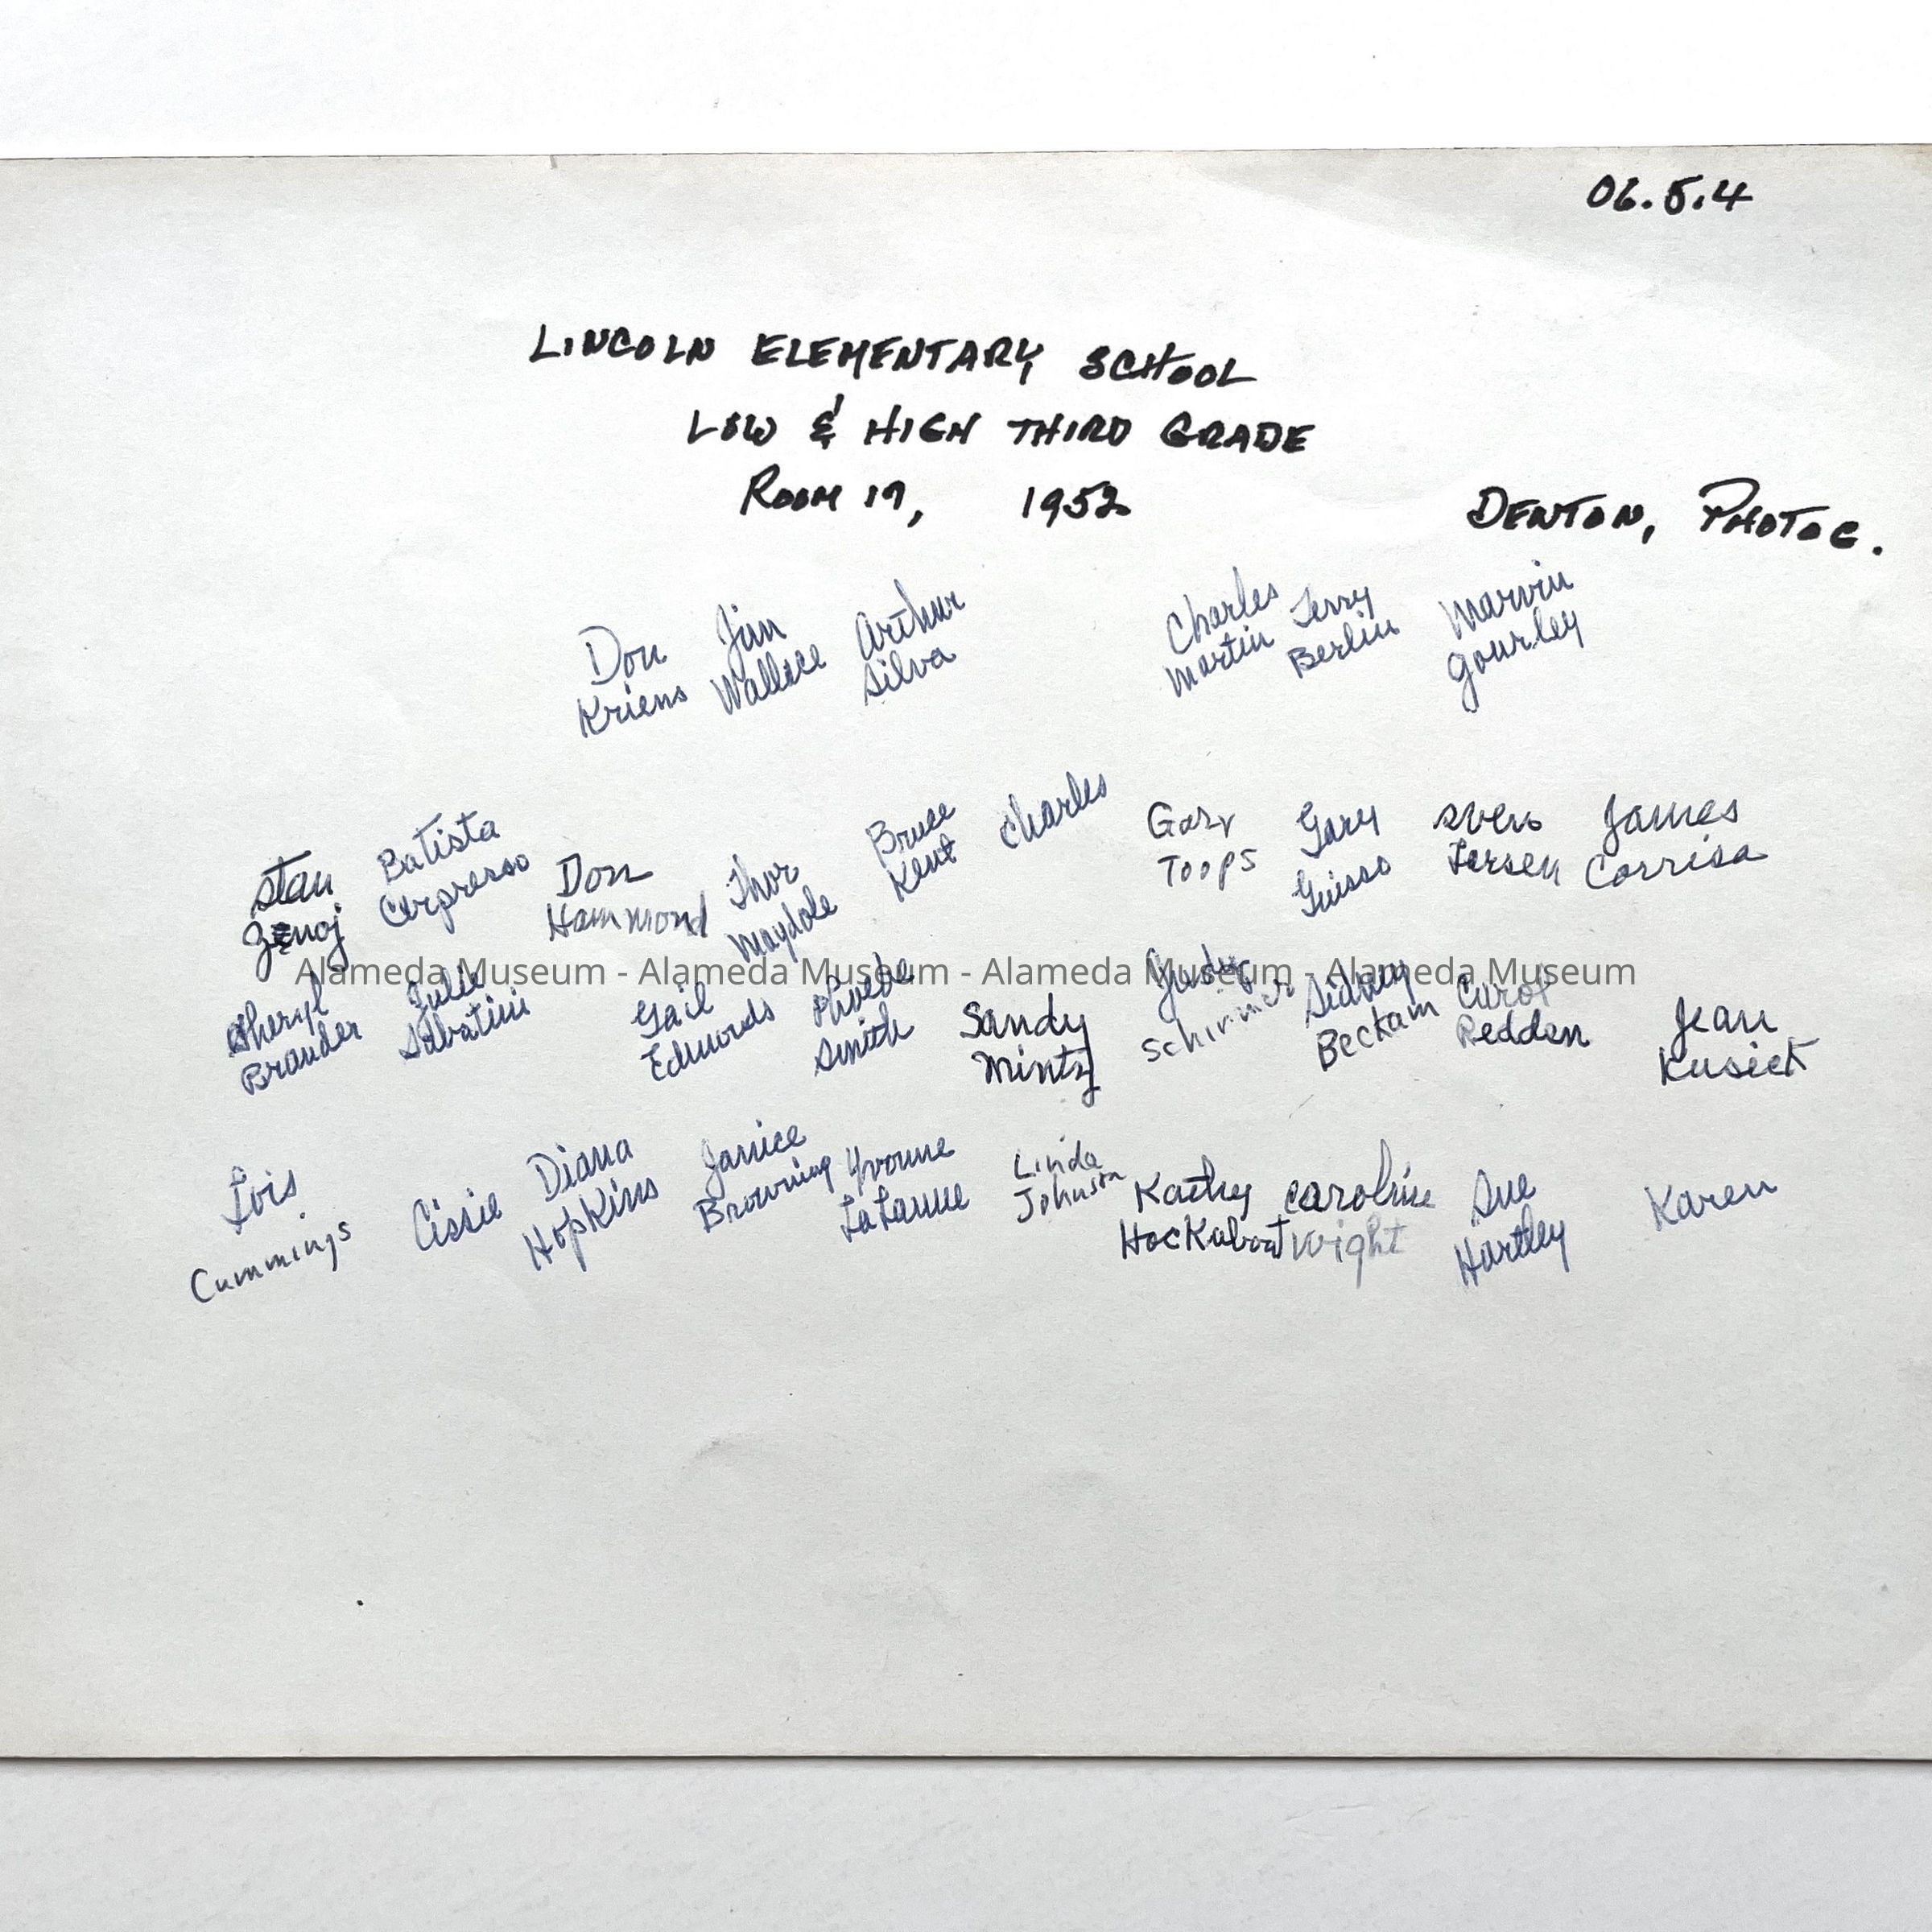 06.5.4
LINCOLN ELEMENTARY SCHOOL
LOW & HIGH THIRD GRADE
ROOM 17, 1952
DENTON, PHOTOG.
Don Jim Arthur Charles Terry Marvin
Kriens Wallace Silva Martin Berlin Gourley
Stan Batista Don Thor Bruce Charles Gary Gary Sven James
Hammond Maydole Kent Toops Guisso Corrisa
Alameda Museum - Alameda Museum - Alameda Museum - Alameda Museum
Sheryl Julie Gail Phoebe Sandy Judy Sidney Carol Jean
Brauder Sabatini Edmords Smith Mintz Schirmer Beckam Redden Kusick
Lois Cissie Diana Janice Yvonne Linda Kathy Caroline Sue Karen
Cummings Hopkins Browning LaLanne Johnson Hockabout Wright Hartley